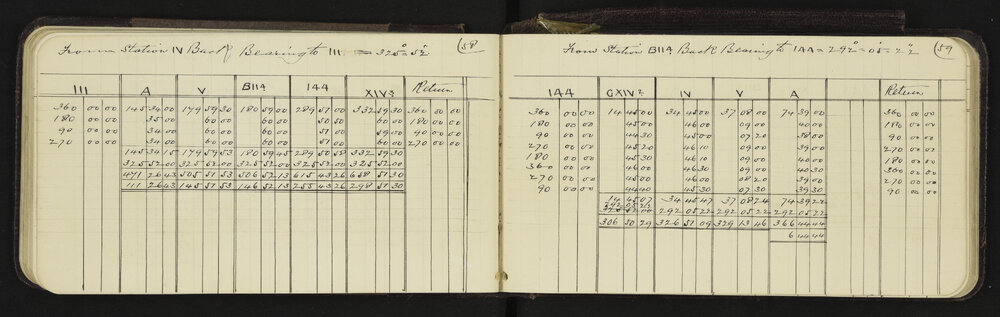 From Station IV Back Bearing to III = 325° = 52' (58
III A V B114 144 XIVs Return
360 00 00 145 34 00 179 59 30 180 59 00 289 51 00 332 59 30 360 00 00
180 00 00 35 00 60 00 60 00 50 50 60 00 180 00 00
90 00 00 34 00 60 00 60 00 51 00 59 30 90 00 00
270 00 00 34 00 60 00 60 00 51 00 60 00 270 00 00
145 34 15 179 59 53 180 59 45 289 50 58 332 59 30
325 52 00 325 52 00 325 52 00 325 52 00 325 52 00
471 26 43 505 51 53 506 52 13 615 43 26 658 51 30
111 26 43 145 51 53 146 52 13 255 43 26 298 51 30
From Station B114 Back Bearing to 144 = 292° = 05' = 22" (59
144 GXIVz IV V A Return
360 00 00 14 45 00 34 45 00 37 08 00 74 39 00 360 00 00
180 00 00 45 00 46 00 09 00 40 00 180 00 00
90 00 00 44 30 45 00 07 20 38 00 90 00 00
270 00 00 45 20 46 10 09 00 39 00 270 00 00
180 00 00 45 30 46 10 09 00 40 00 180 00 00
360 00 00 46 00 46 30 09 00 40 30 360 00 00
270 00 00 45 00 46 00 08 20 39 00 270 00 00
90 00 00 44 40 45 30 07 30 39 30 90 00 00
14 45 07 34 45 47 37 08 24 74 39 22
292 05 22 292 05 22 292 05 22 292 05 22
306 50 29 326 51 09 329 13 46 366 44 44
6 44 44